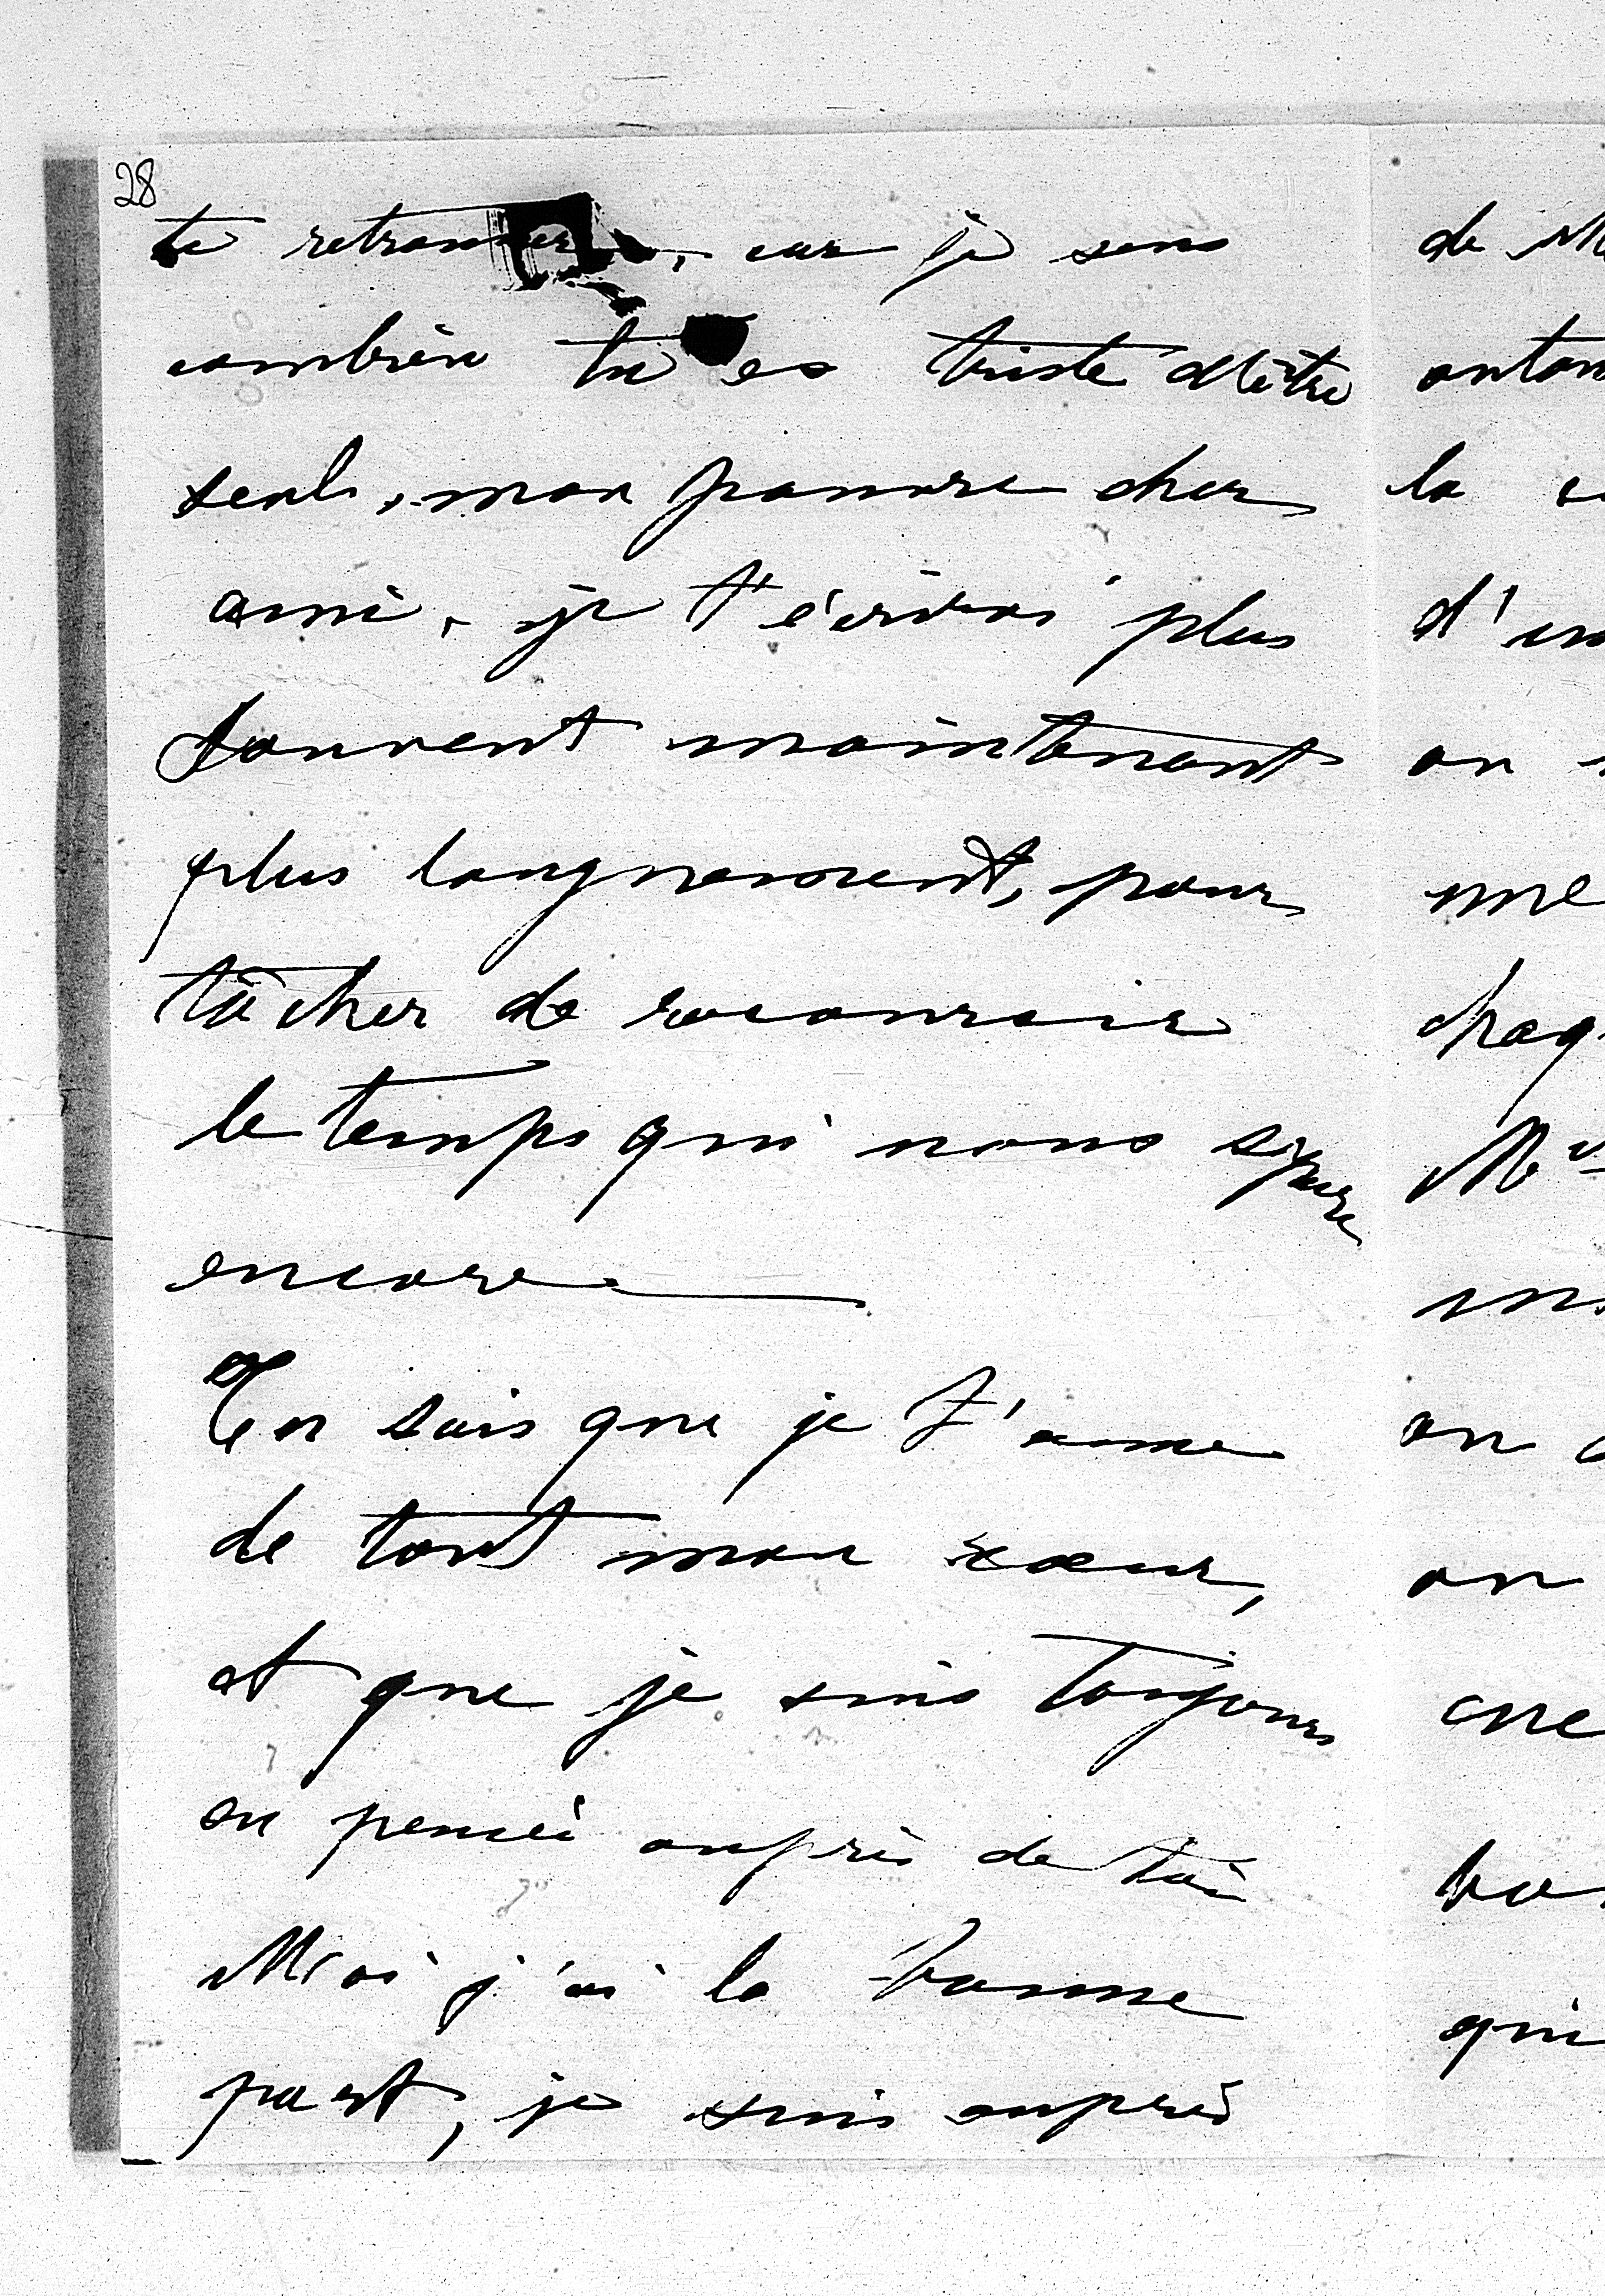 28
te retrouver, car je sens
combien tu es triste d'être
seul, mon pauvre cher
ami, je t'écrirai plus
souvent maintenant
plus longuement, pour
tâcher de raccourcir
le temps qui nous sépare
encore
Tu sais que je t'aime
de tout mon cœur,
et que je suis toujours
en pensée auprès de toi
Moi j'ai la bonne
part, je suis auprès
de
la
d'un
on
me
on
on
qui